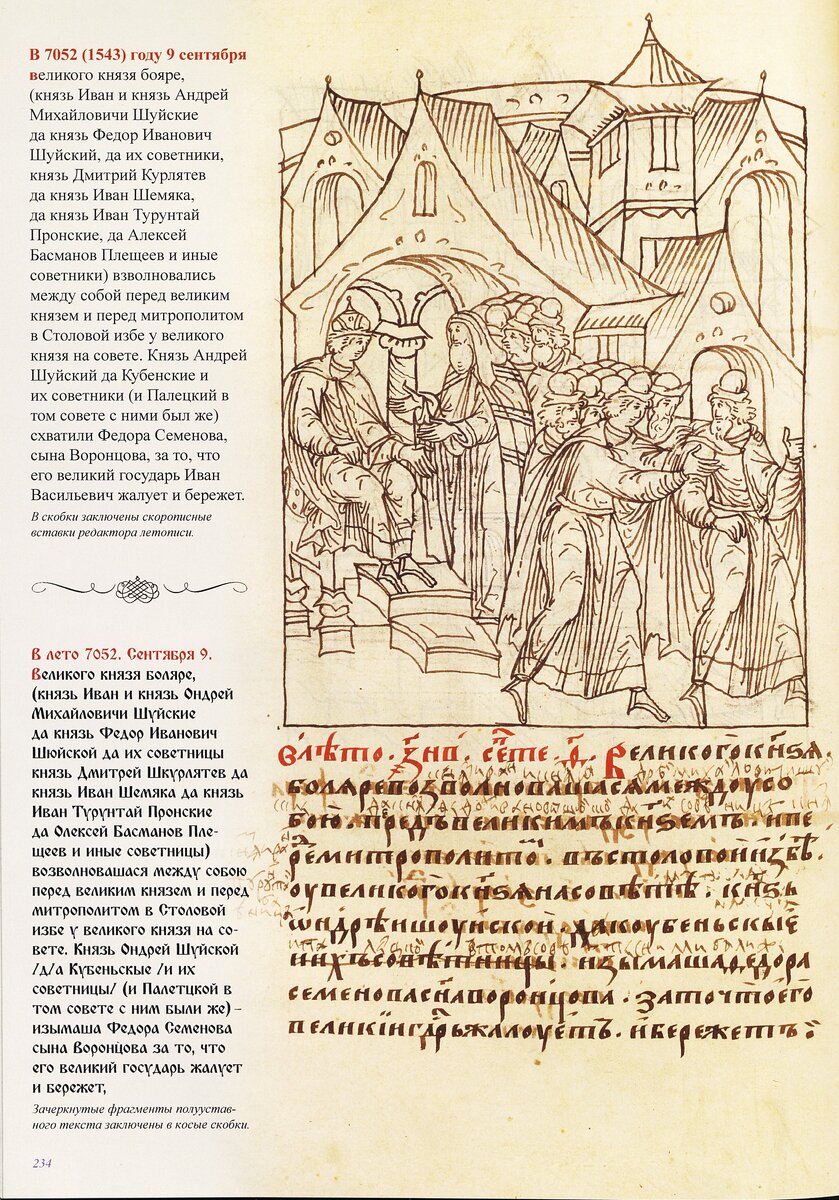 В 7052 (1543) году 9 сентября
великого князя бояре,
(князь Иван и князь Андрей
Михайловичи Шуйские
да князь Федор Иванович
Шуйский, да их советники,
князь Дмитрий Курлятев
да князь Иван Шемяка,
да князь Иван Турунтай
Пронские, да Алексей
Басманов Плещеев и иные
советники) взволновались
между собой перед великим
князем и перед митрополитом
в Столовой избе у великого
князя на совете. Князь Андрей
Шуйский да Кубенские и
их советники (и Палецкий в
том совете с ними был же)
схватили Федора Семенова,
сына Воронцова, за то, что
его великий государь Иван
Васильевич жалует и бережет.
В скобки заключены скорописные
вставки редактора летописи.
В лето 7052. Сентября 9.
Великого князя боляре,
(князь Иван и князь Ондрей
Михайловичи Шуйские
да князь Федор Иванович
Шюйской да их советницы
князь Дмитрей Шкурлятев да
князь Иван Шемяка да князь
Иван Турунтай Пронские
да Олексей Басманов Пле-
щеев и иные советницы)
возволновашася между собою
перед великим князем и перед
митрополитом в Столовой
избе у великого князя на со-
вете. Князь Ондрей Шуйской
/д/а Кубеньскые /и их
советницы/ (и Палетцкой в
том совете с ним были же) –
изымаша Федора Семенова
сына Воронцова за то, что
его великий государь жалует
и бережет,
Зачеркнутые фрагменты полуустав-
ного текста заключены в косые скобки.
234
великогокнѕѧ
болѧревозволновашасѧмеждоусо
бою. предъвеликимъкнѕемъ. ипе
ремитрополито. въстоловоиизбѣ.
оувеликогокнѕѧнасовѣтѣ. кнѕь
ѡндрѣишоуискои. дакоубеньскыѣ
иихъсовѣтницы. изымашаѳедора
семеновасн҃аворонцова. заточтоего
великіигдрьжалоуетъ. ибережетъ